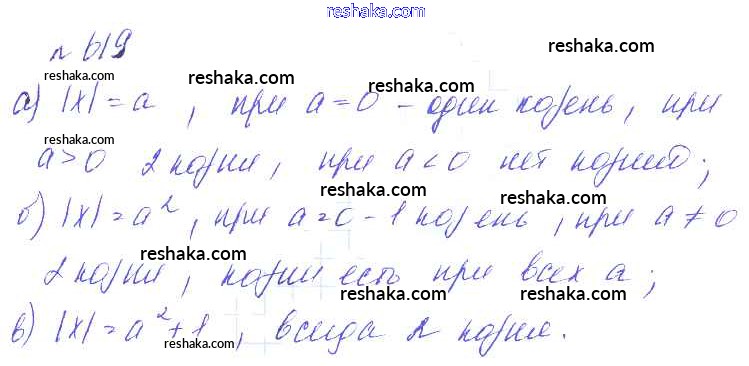 reshaka.com
n 619 reshaka.com
reshaka.com reshaka.com
а) |x| = a , при a = 0 - один корень, при
reshaka.com
a > 0 2 корня, при a < 0 нет корней;
reshaka.com reshaka.com
б) |x| = a², при a = 0 - 1 корень, при a ≠ 0
reshaka.com reshaka.com
2 корня, корни есть при всех a;
reshaka.com reshaka.com
в) |x| = a² + 1, всегда 2 корня.
reshaka.com reshaka.com